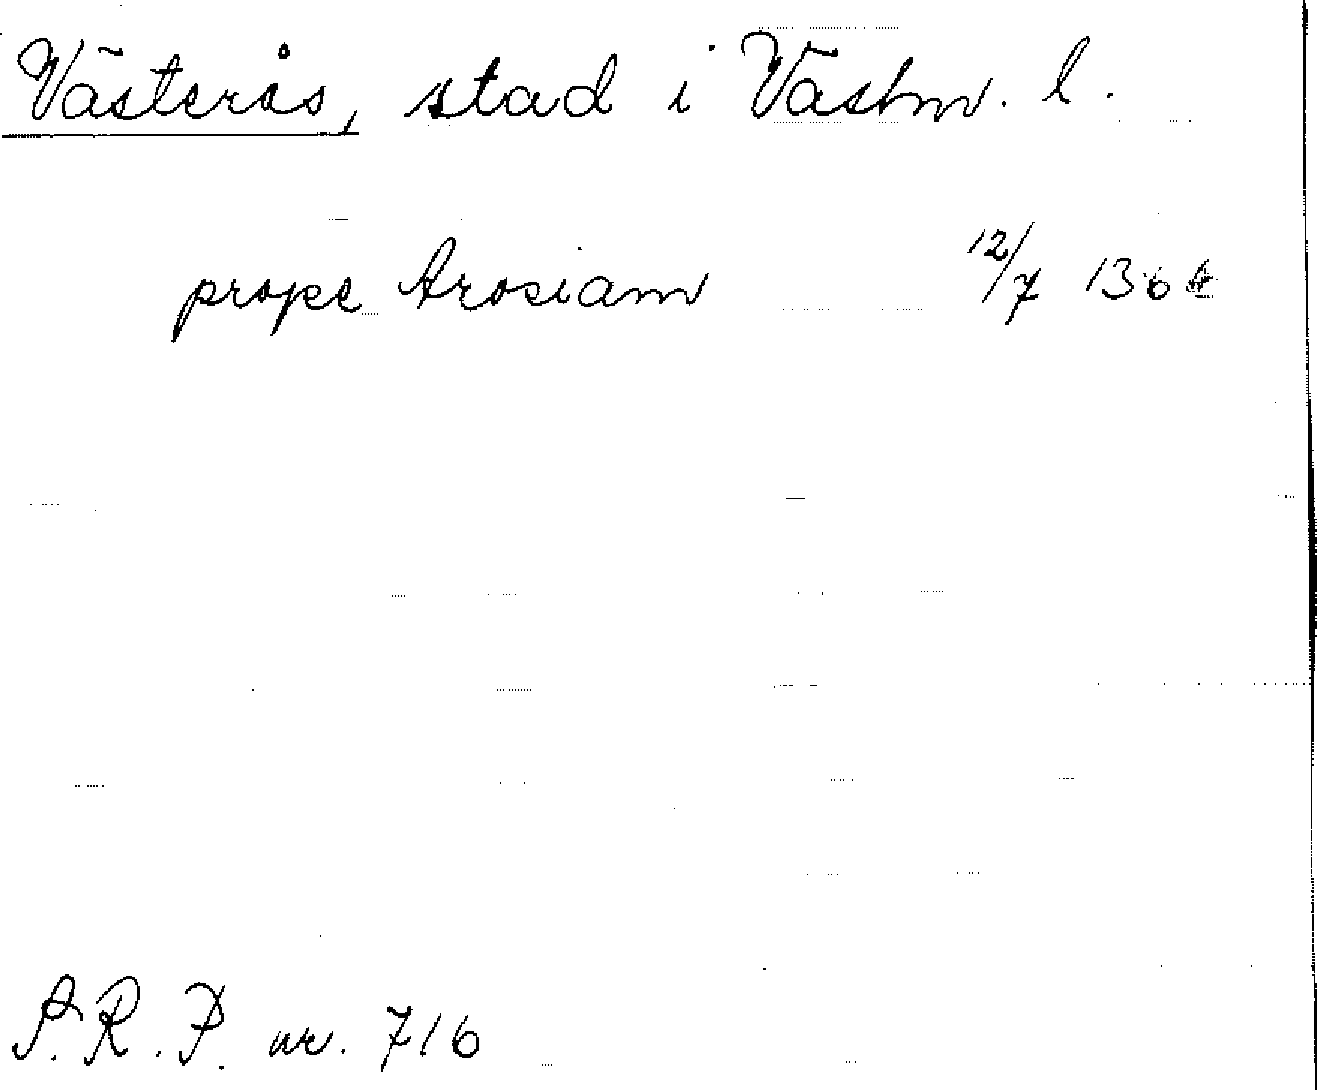 Västerås, stad i Västm. l.
prope Arosiam 12/7 1364
S.R.P. nr. 716